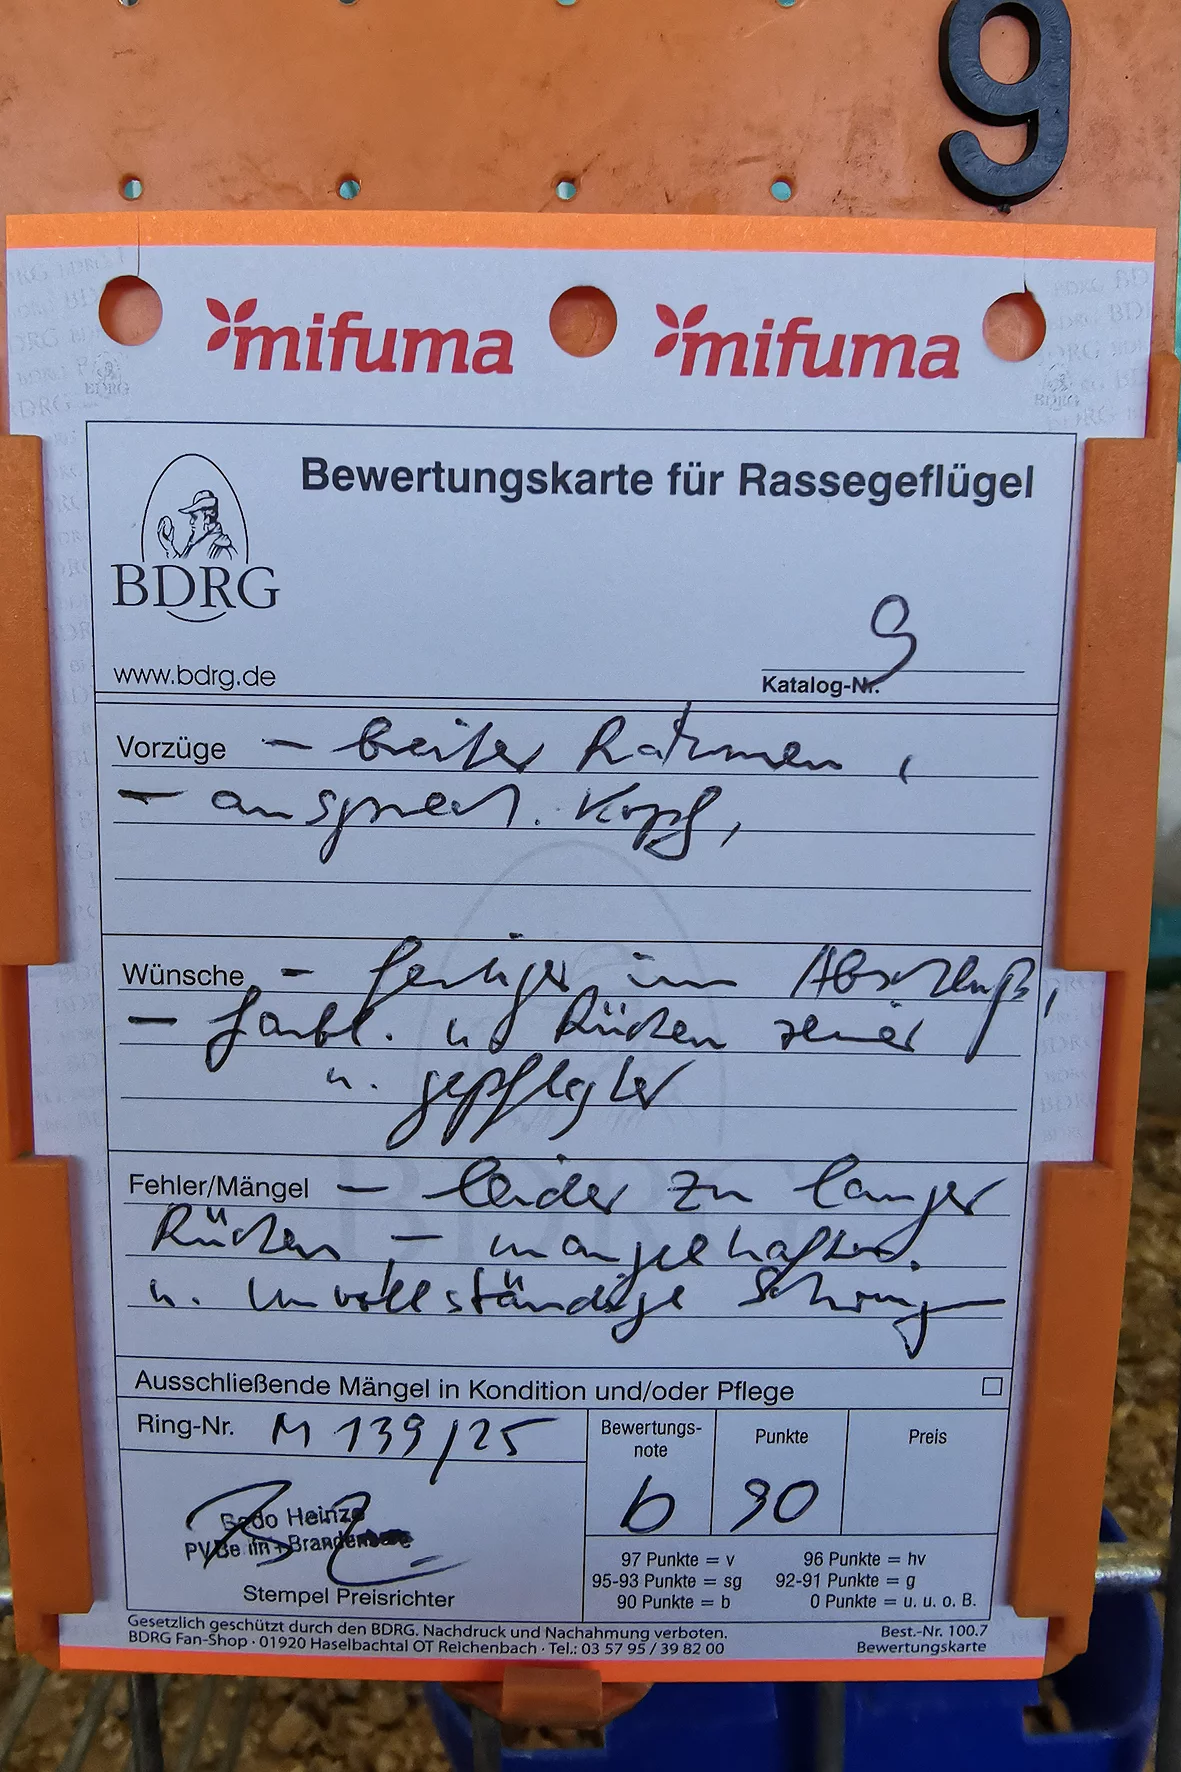 9
mifuma mifuma
Bewertungskarte für Rassegeflügel
BDRG
www.bdrg.de
9
Katalog-Nr.
Vorzüge - breiter Rahmen,
- ansprech. Kopf,
Wünsche - fertiger im Abschluß,
- farbl. u Rücken reiner
u. gepflegter
Fehler/Mängel - leider zu langer
Rücken, - mangelhafte.
u. unvollständige Schwing
Ausschließende Mängel in Kondition und/oder Pflege
Ring-Nr. M 139/25
Bewertungs-
note
Punkte
Preis
b 90
Heinze
PV Berlin + Brandenburg
Stempel Preisrichter
97 Punkte = v 96 Punkte = hv
95-93 Punkte = sg 92-91 Punkte = g
90 Punkte = b 0 Punkte = u. u. o. B.
Gesetzlich geschützt durch den BDRG. Nachdruck und Nachahmung verboten.
BDRG Fan-Shop · 01920 Haselbachtal OT Reichenbach · Tel.: 03 57 95 / 39 82 00
Best.-Nr. 100.7
Bewertungskarte